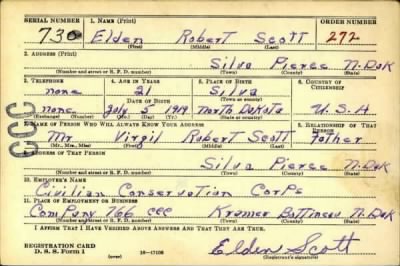 SERIAL NUMBER 1. NAME (Print) ORDER NUMBER
730 Elden Robert Scott 272
(First) (Middle) (Last)
2. ADDRESS (Print)
Silva Pierce N-Dak
(Number and street or R. F. D. number) (Town) (County) (State)
3. TELEPHONE 4. AGE IN YEARS 5. PLACE OF BIRTH 6. COUNTRY OF CITIZENSHIP
none 21 Silva
DATE OF BIRTH (Town or county)
none July 5 1919 North Dakota U.S.A
(Exchange) (Number) (Mo.) (Day) (Yr.) (State or country)
7. NAME OF PERSON WHO WILL ALWAYS KNOW YOUR ADDRESS 8. RELATIONSHIP OF THAT PERSON
Mr Virgil Robert Scott father
(Mr., Mrs., Miss) (First) (Middle) (Last)
9. ADDRESS OF THAT PERSON
Silva Pierce N-Dak
(Number and street or R. F. D. number) (Town) (County) (State)
10. EMPLOYER'S NAME
Civilian Conservation Corps
11. PLACE OF EMPLOYMENT OR BUSINESS
Company 766 CCC Kramer Bottineau N-Dak
(Number and street or R. F. D. number) (Town) (County) (State)
I AFFIRM THAT I HAVE VERIFIED ABOVE ANSWERS AND THAT THEY ARE TRUE.
REGISTRATION CARD
D. S. S. Form 1 (over) 16—17105 Elden Scott
(Registrant's signature)
CCC